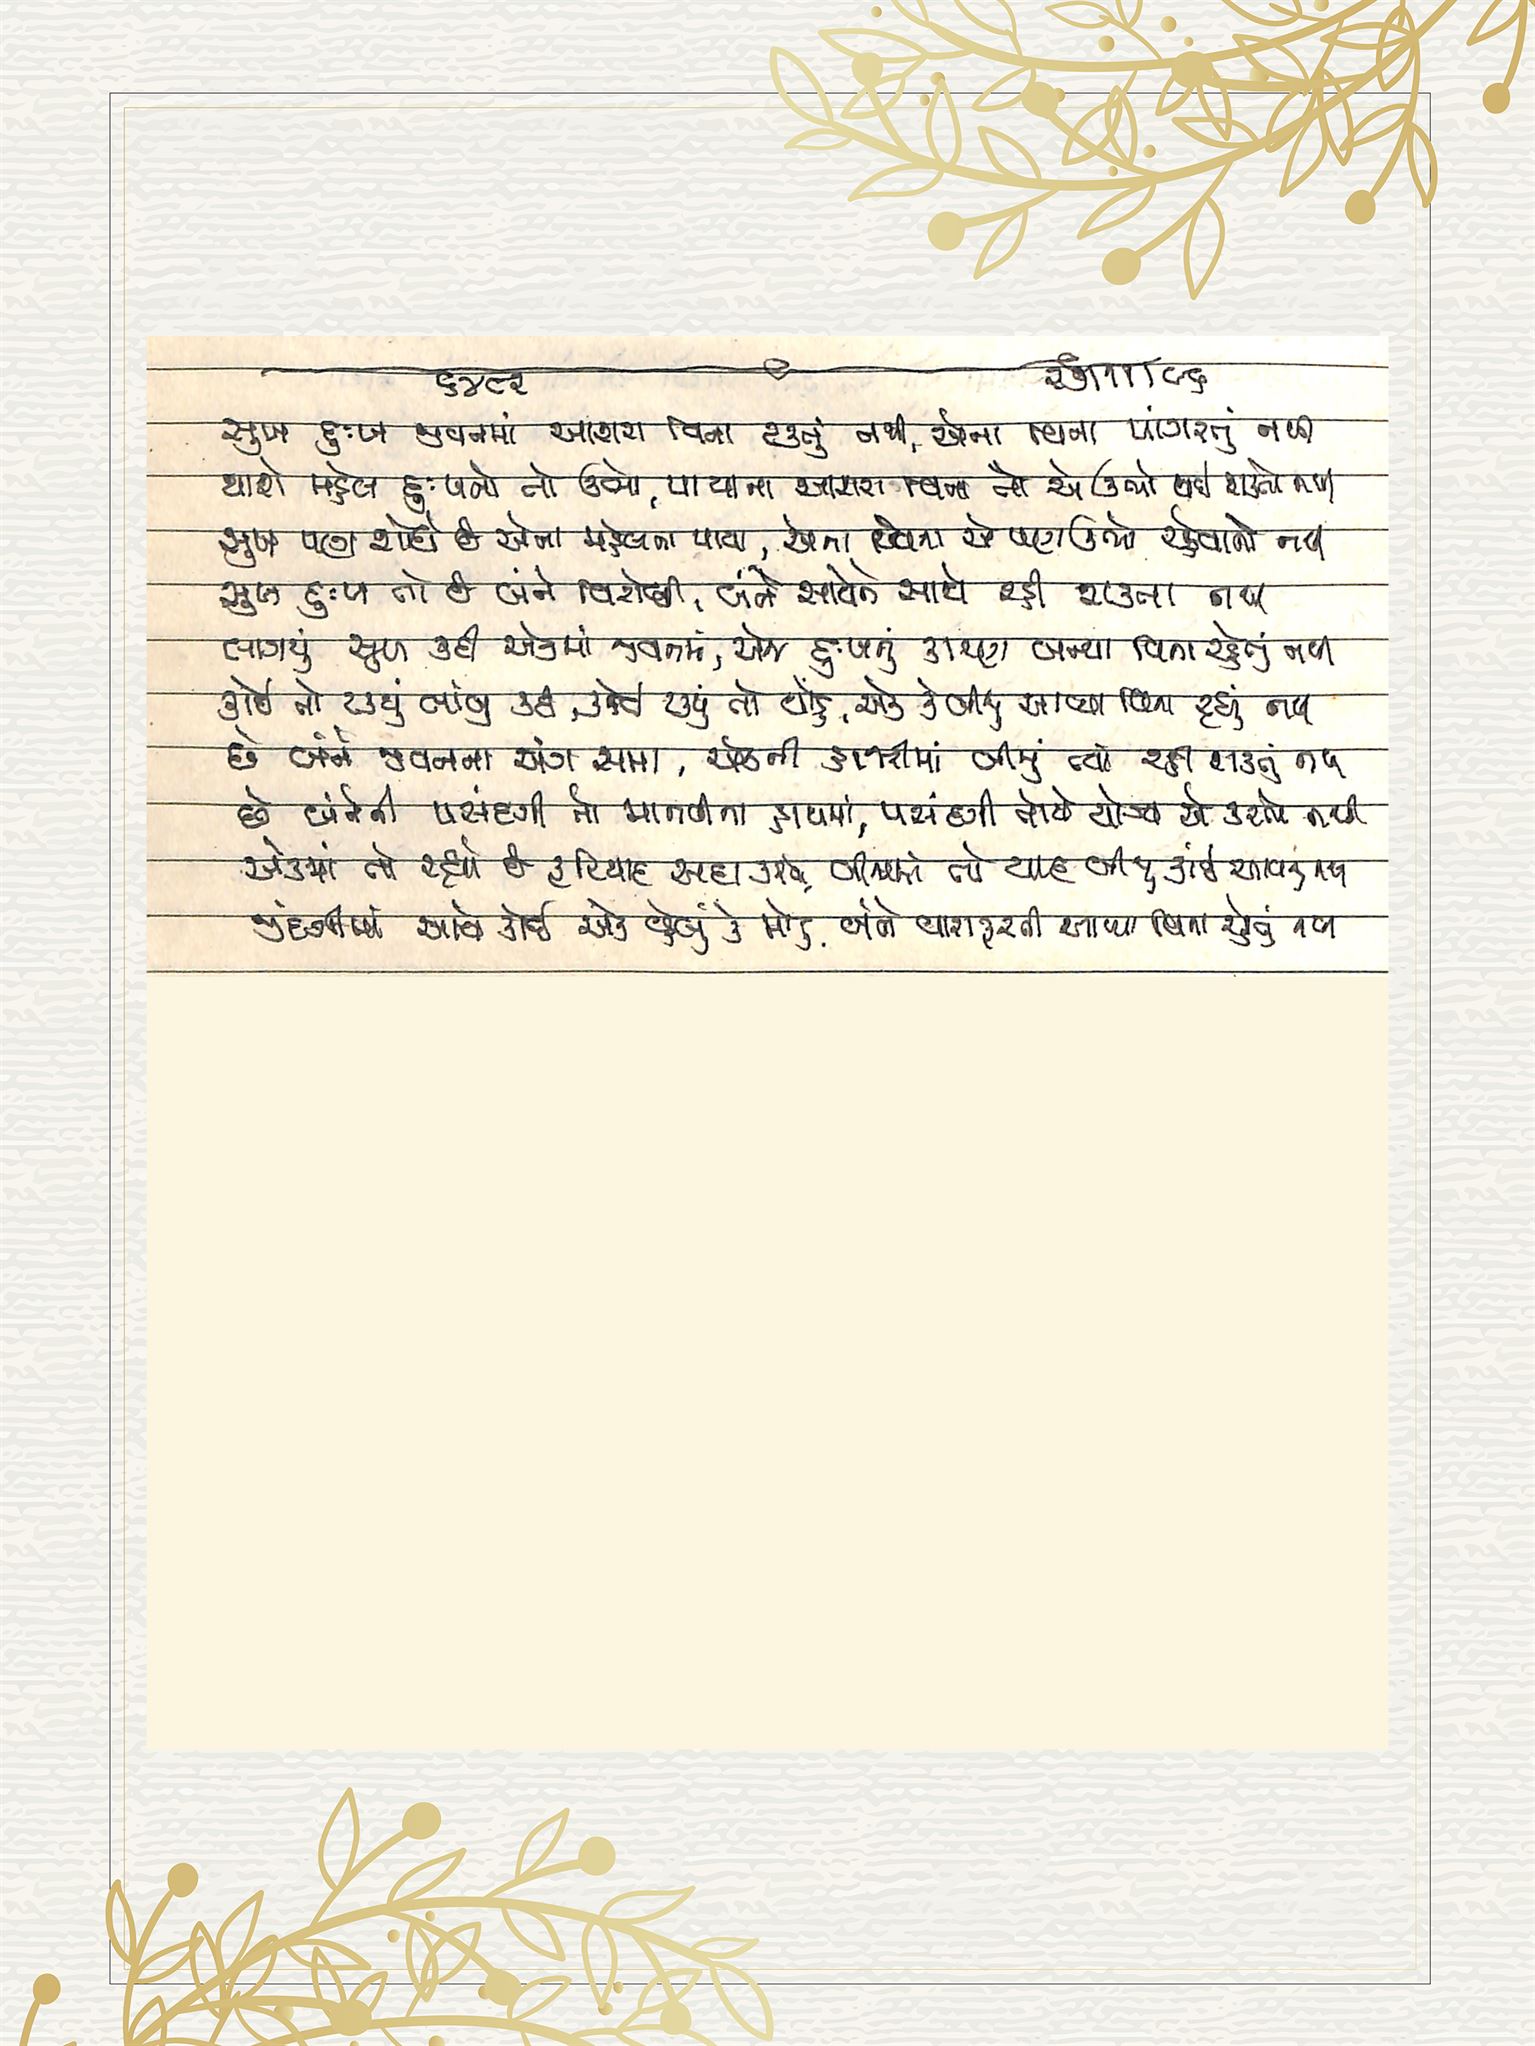 ૬૪૮૨
સુખ દુઃખ જીવનમાં આશરા વિના ટકતું નથી, એના વિના પાંગરતું નથી
થાશે મહેલ દુઃખનો તો ઉભો, પાયાના આશરા વિના તો એ ઉભો થઈ શક્તો નથી
સુખ પણ શોધે છે એના મહેલના પાયા, એના વિના એ પણ ઉભો રહેવાનો નથી
સુખ દુઃખ તો છે બંને વિરોધી, બંને સાથેને સાથે રહી શક્તા નથી
લાગ્યું સુખ કદી એકમાં જીવનમાં, એજ દુઃખનું કારણ બન્યા વિના રહેતું નથી
કોઈ તો ટક્યું લાંબુ કદી, કોઈ ટક્યું તો થોડું, એક કે બીજું આવ્યા વિના રહ્યું નથી
છે બંને જીવનના અંગ સમા, એકની હાજરીમાં બીજું ત્યાં રહી શક્તું નથી
છે બંનેની પસંદગી તો માનવીના હાથમાં, પસંદગી તોયે યોગ્ય એ કરતો નથી
એકમાં તો રહ્યો છે ફરિયાદ સદા કરતો, બીજામાં તો યાદ બીજું કાંઈ આવતું નથી
જીંદગીમાં આવે કોઈ એક વહેલું કે મોડું, બંને વારાફરતી આવ્યા વિના રહેતું નથી